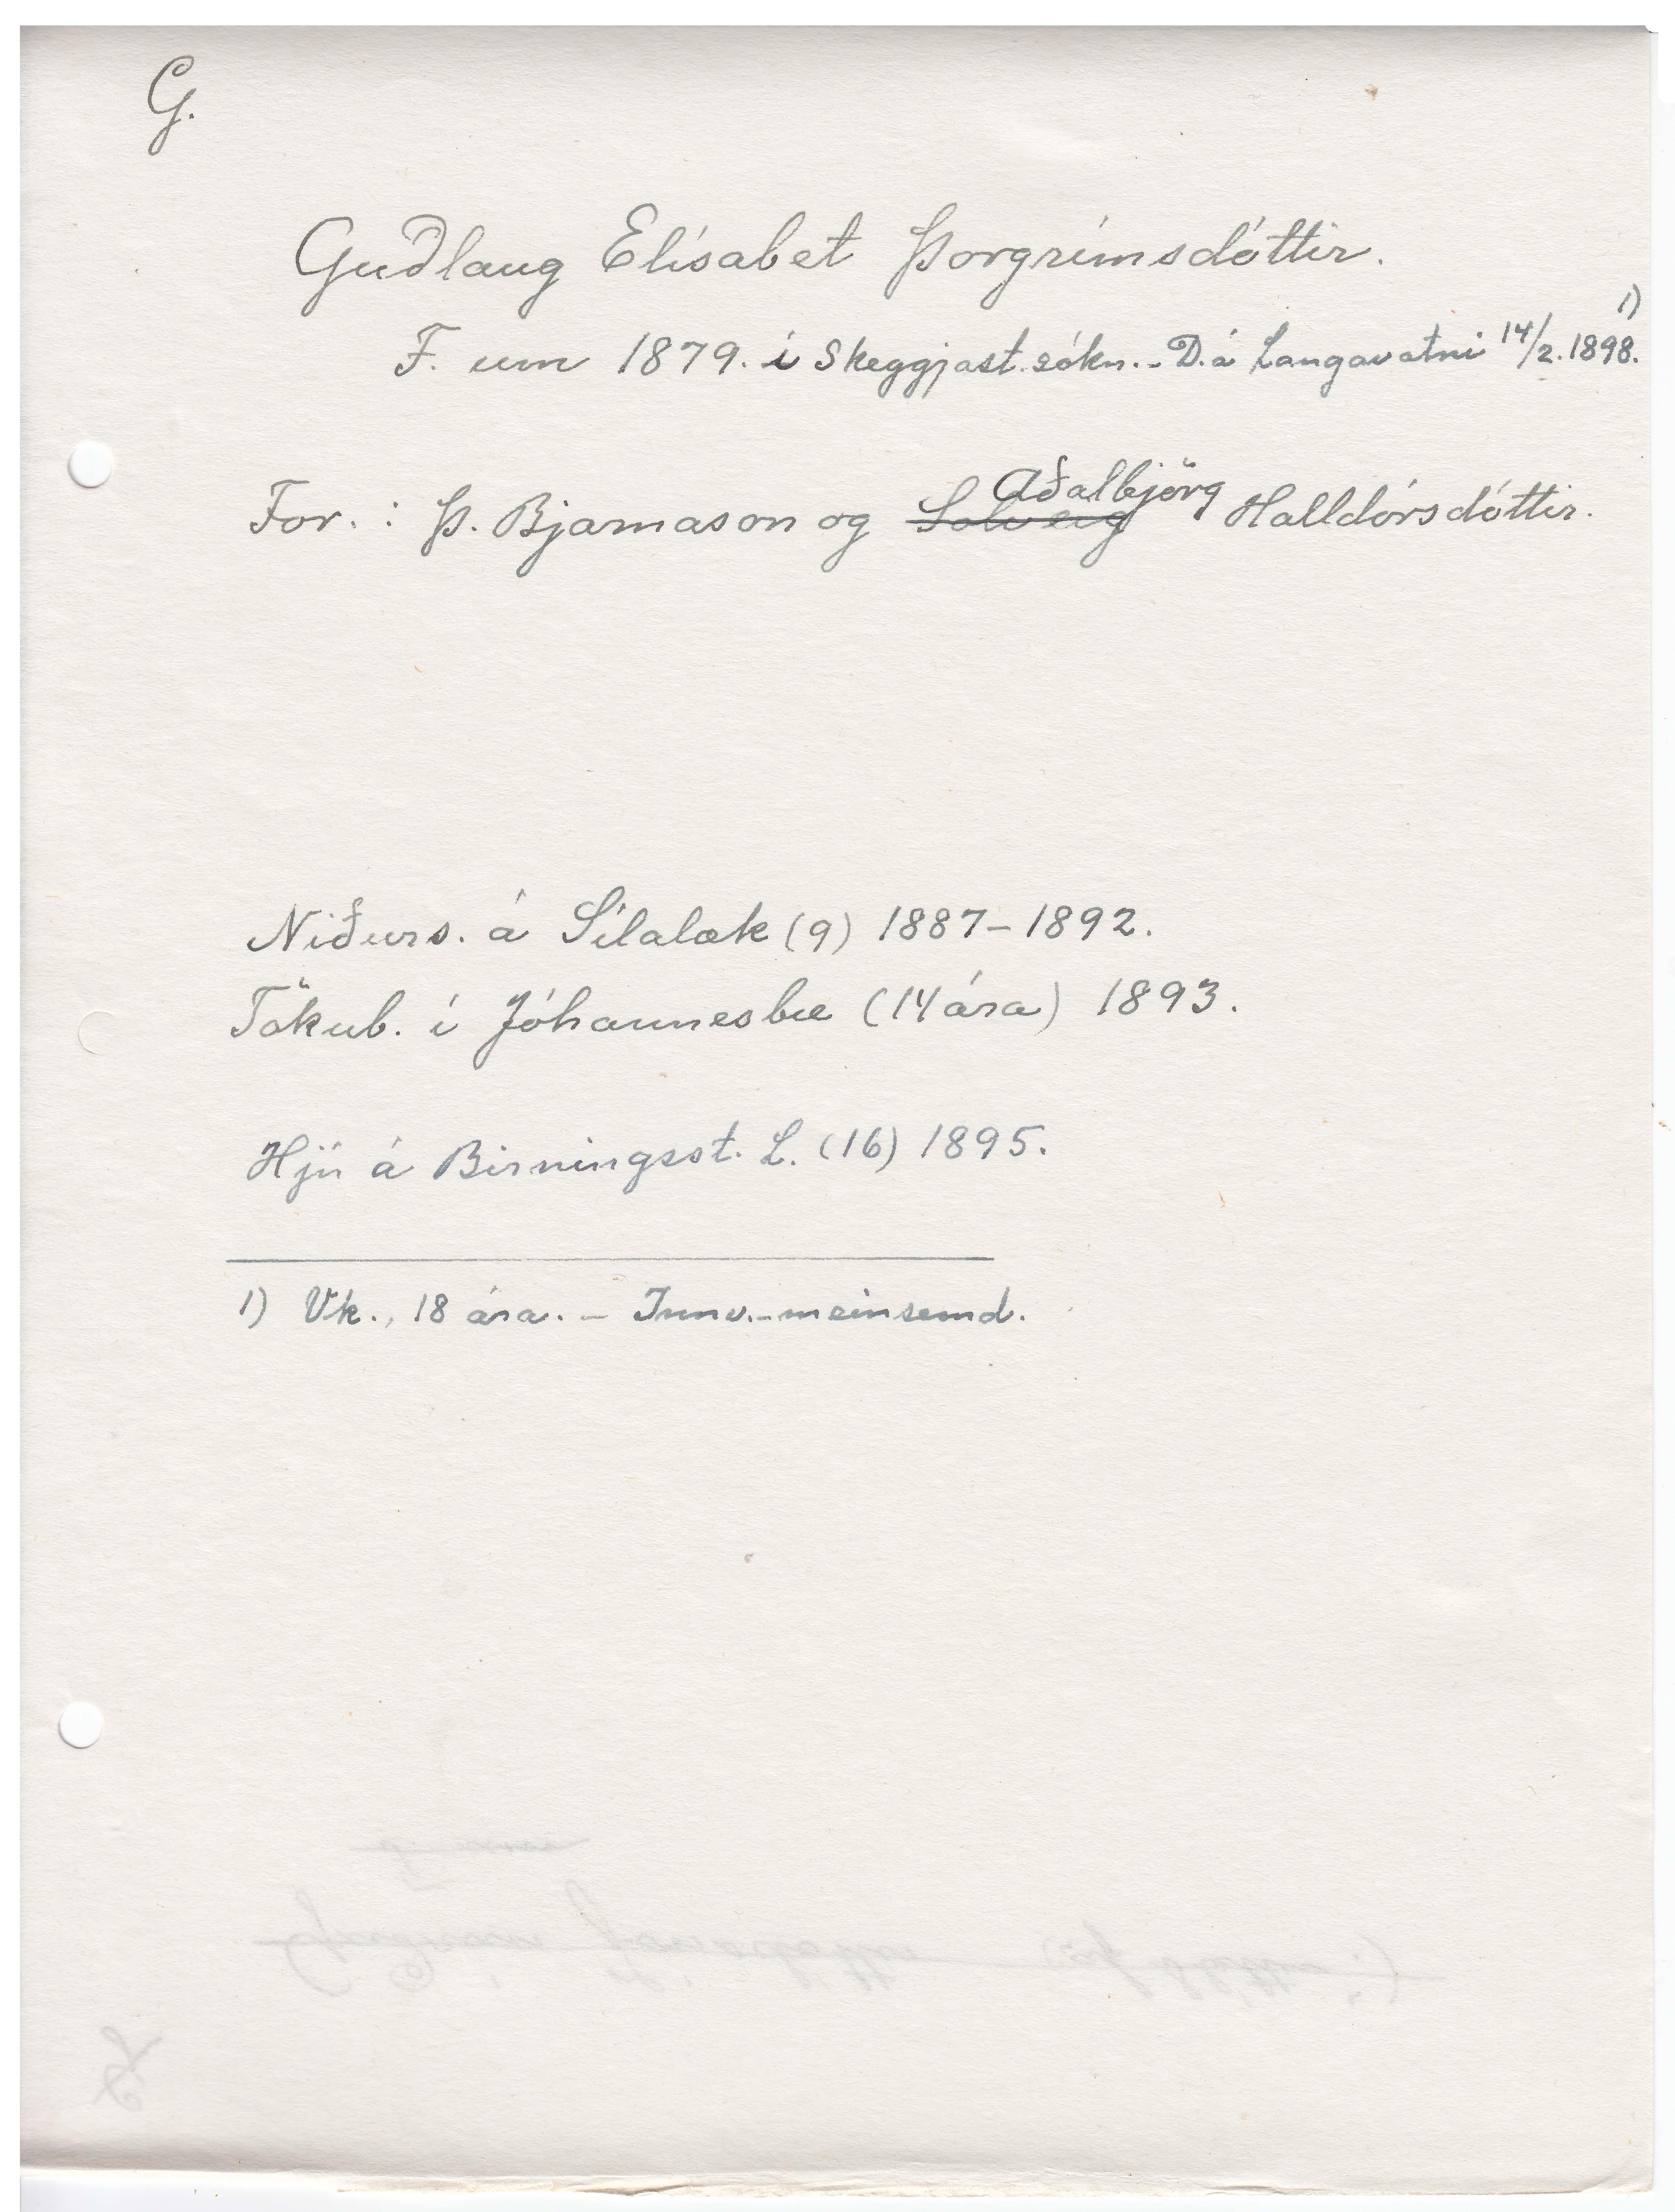 G.
Guðlaug Elísabet Þorgrímsdóttir.
F. um 1879. í Skeggjast.sókn. - D. á Langavatni 14/2. 1898. 1)
For. : Þ. Bjarnason og Solveig Aðalbjörg Halldórsdóttir.
Niðurs. á Sílalæk (9) 1887 - 1892.
Tökub. í Jóhannesbæ (14 ára) 1893.
Hjú á Birningsst. L. (16) 1895.
1) Vk., 18 ára. - Innv.-meinsemd.